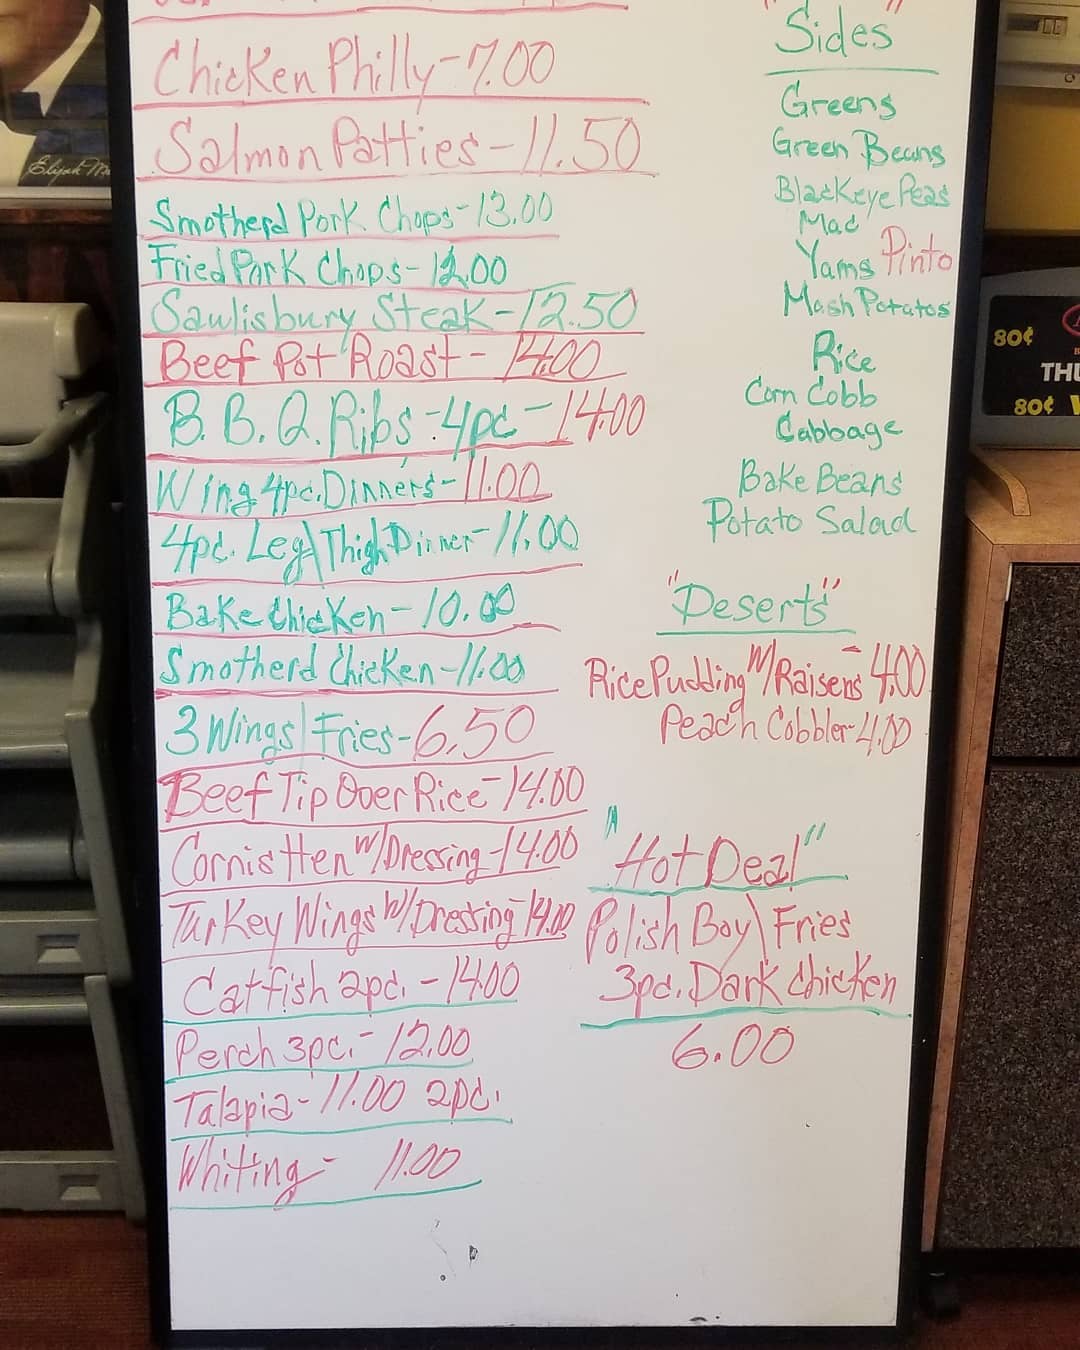 Chicken Philly - 7.00
Salmon Patties - 11.50
Smotherd Pork Chops - 13.00
Fried Pork Chops - 12.00
Sawlisbury Steak - 12.50
Beef Pot Roast - 14.00
B.B.Q. Ribs - 4pc - 14.00
Wing 4pc. Dinners - 11.00
4pc. Leg\Thigh Dinner - 11.00
Bake Chicken - 10.00
Smotherd Chicken - 11.00
3 Wings/Fries - 6.50
Beef Tip Over Rice - 14.00
Cornis Hen W/Dressing - 14.00
Turkey Wings W/Dressing - 14.00
Catfish 2pc. - 14.00
Perch 3pc. - 12.00
Talapia - 11.00 2pc.
Whiting - 11.00
"Sides"
Greens
Green Beans
Blackeye Peas
Mac
Yams Pinto
Mash Potatos
Rice
Corn Cobb
Cabbage
Bake Beans
Potato Salad
"Deserts"
Rice Pudding W/Raisens - 4.00
Peach Cobbler - 4.00
"Hot Deal"
Polish Boy\Fries
3pc. Dark Chicken
6.00
80¢
THU
80¢